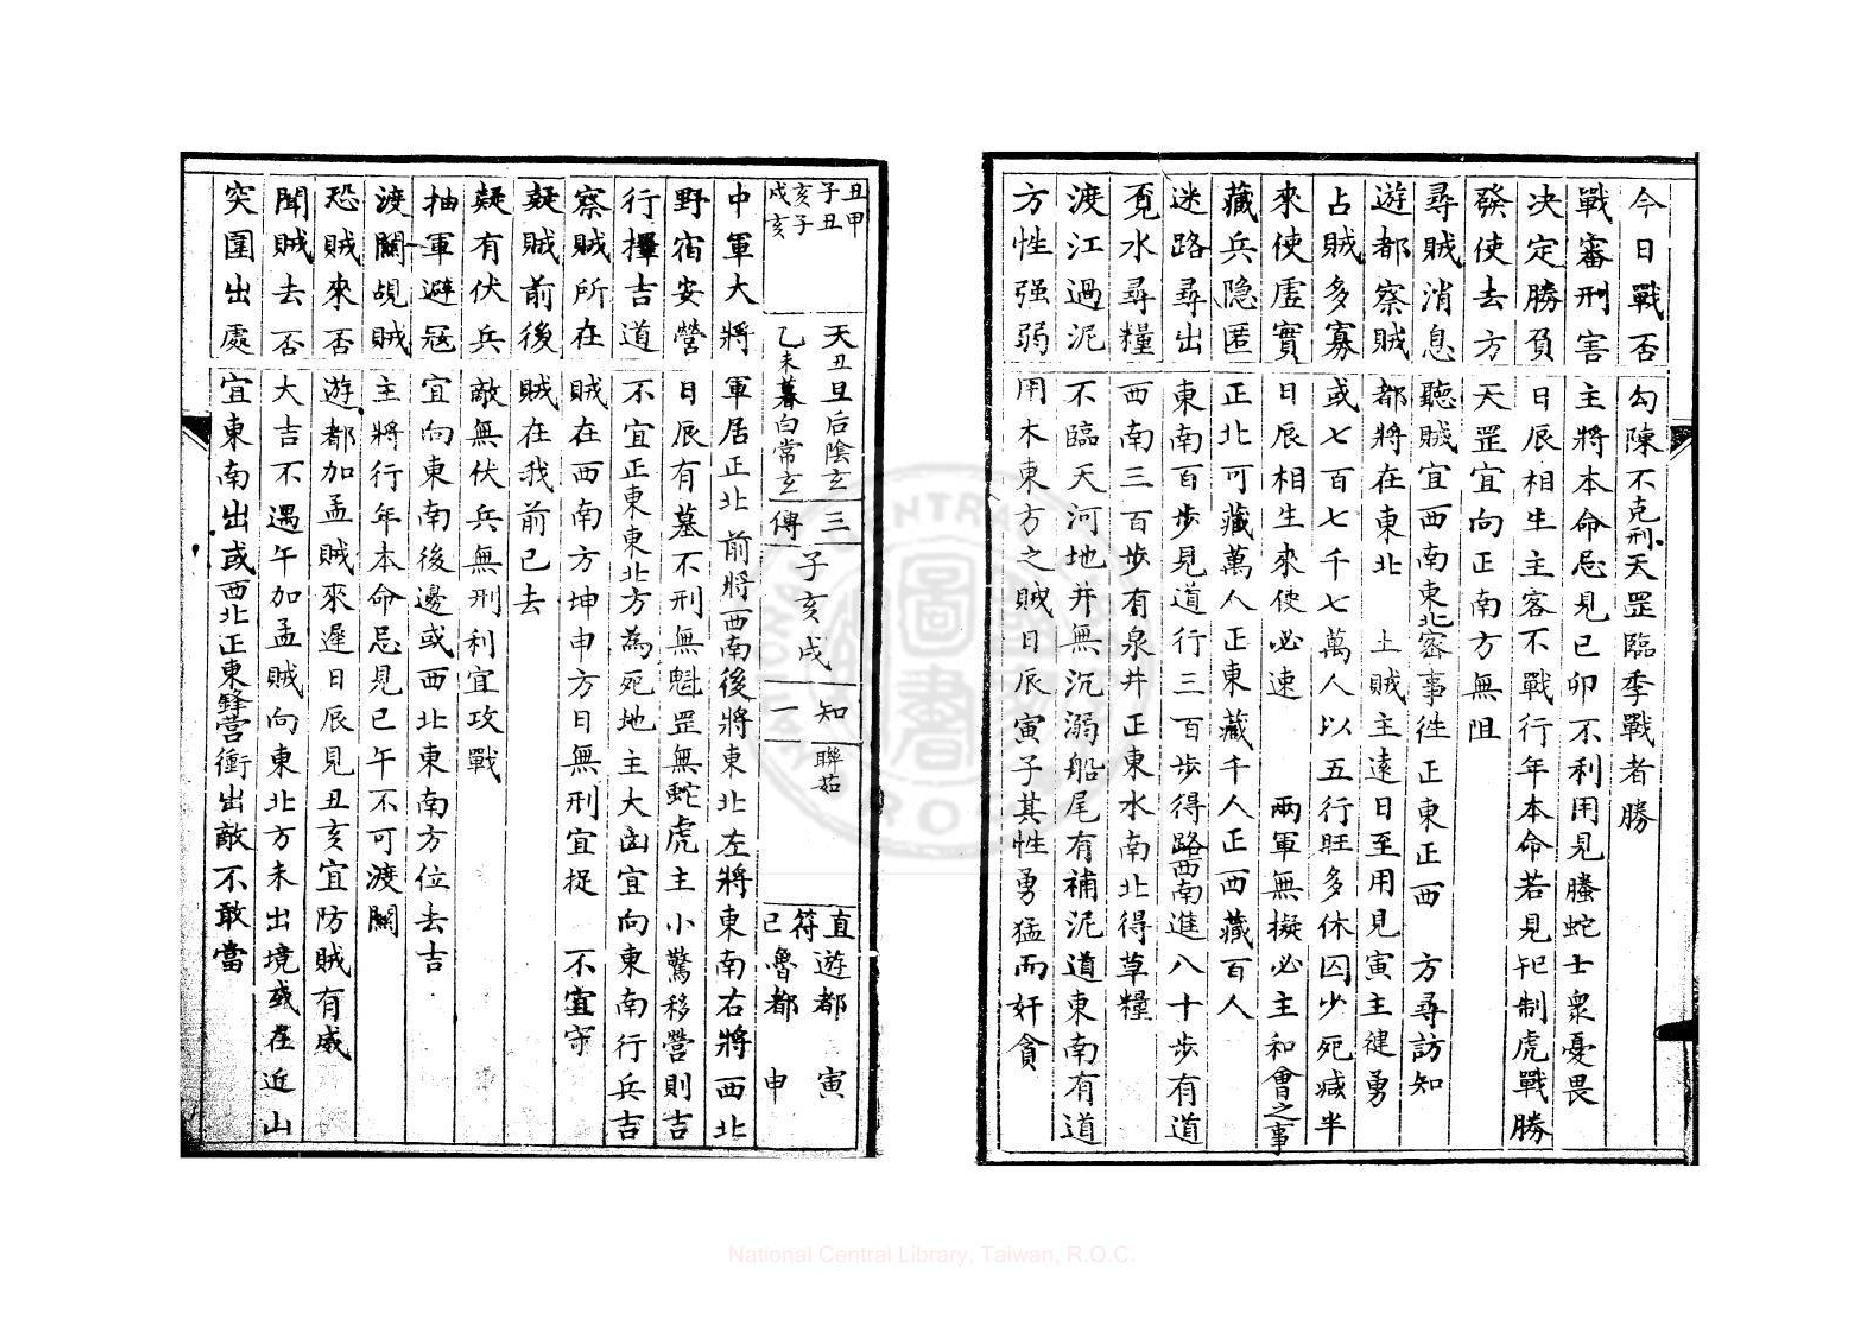 今日戰否 勾陳不克刑天罡臨季戰者勝
戰審刑害 主將本命忌見巳卯不利用見螣蛇士衆憂畏
決定勝負 日辰相生主客不戰行年本命若見制虎戰勝
發使去方 天罡宜向正南方無阻
尋賊消息 聽賊宜西南東北密事徃正東正西 方尋訪知
遊都察賊 都將在東北 上賊主遠日至用見寅主健勇
占賊多寡 或七百七千七萬人以五行旺多休囚少死減半
來使虛實 日辰相生來使必速 兩軍無擬必主和會之事
藏兵隐匿 正北可藏萬人正東藏千人正西藏百人
迷路尋出 東南百步見道行三百步得路西南進八十步有道
覓水尋糧 西南三百步有泉井正東水南北得草糧
渡江過泥 不臨天河地井無沉溺船尾有補泥道東南有道
方性强弱 用木東方之賊日辰寅子其性勇猛而奸貪
丑甲
子丑
亥子
戌亥
天丑旦后陰玄
乙未暮白常玄
三傳
子亥戌
知一
聯茹
直符巳
遊都 寅
魯都 申
中軍大將 軍居正北前將西南後將東北左將東南右將西北
野宿安營 日辰有墓不刑無魁罡無蛇虎主小驚移營則吉
行擇吉道 不宜正東東北方為死地主大凶宜向東南行兵吉
察賊所在 賊在西南方坤申方日無刑宜捉 不宜守
疑賊前後 賊在我前已去
疑有伏兵 敵無伏兵無刑利宜攻戰
抽軍避冦 宜向東南後邊或西北東南方位去吉
渡關覘賊 主將行年本命忌見巳午不可渡關
恐賊來否 遊都加孟賊來遲日辰見丑亥宜防賊有威
聞賊去否 大吉不遇午加孟賊向東北方未出境或在近山
突圍出處 宜東南出或西北正東鋒营衝出敵不敢當
National Central Library, Taiwan, R.O.C.